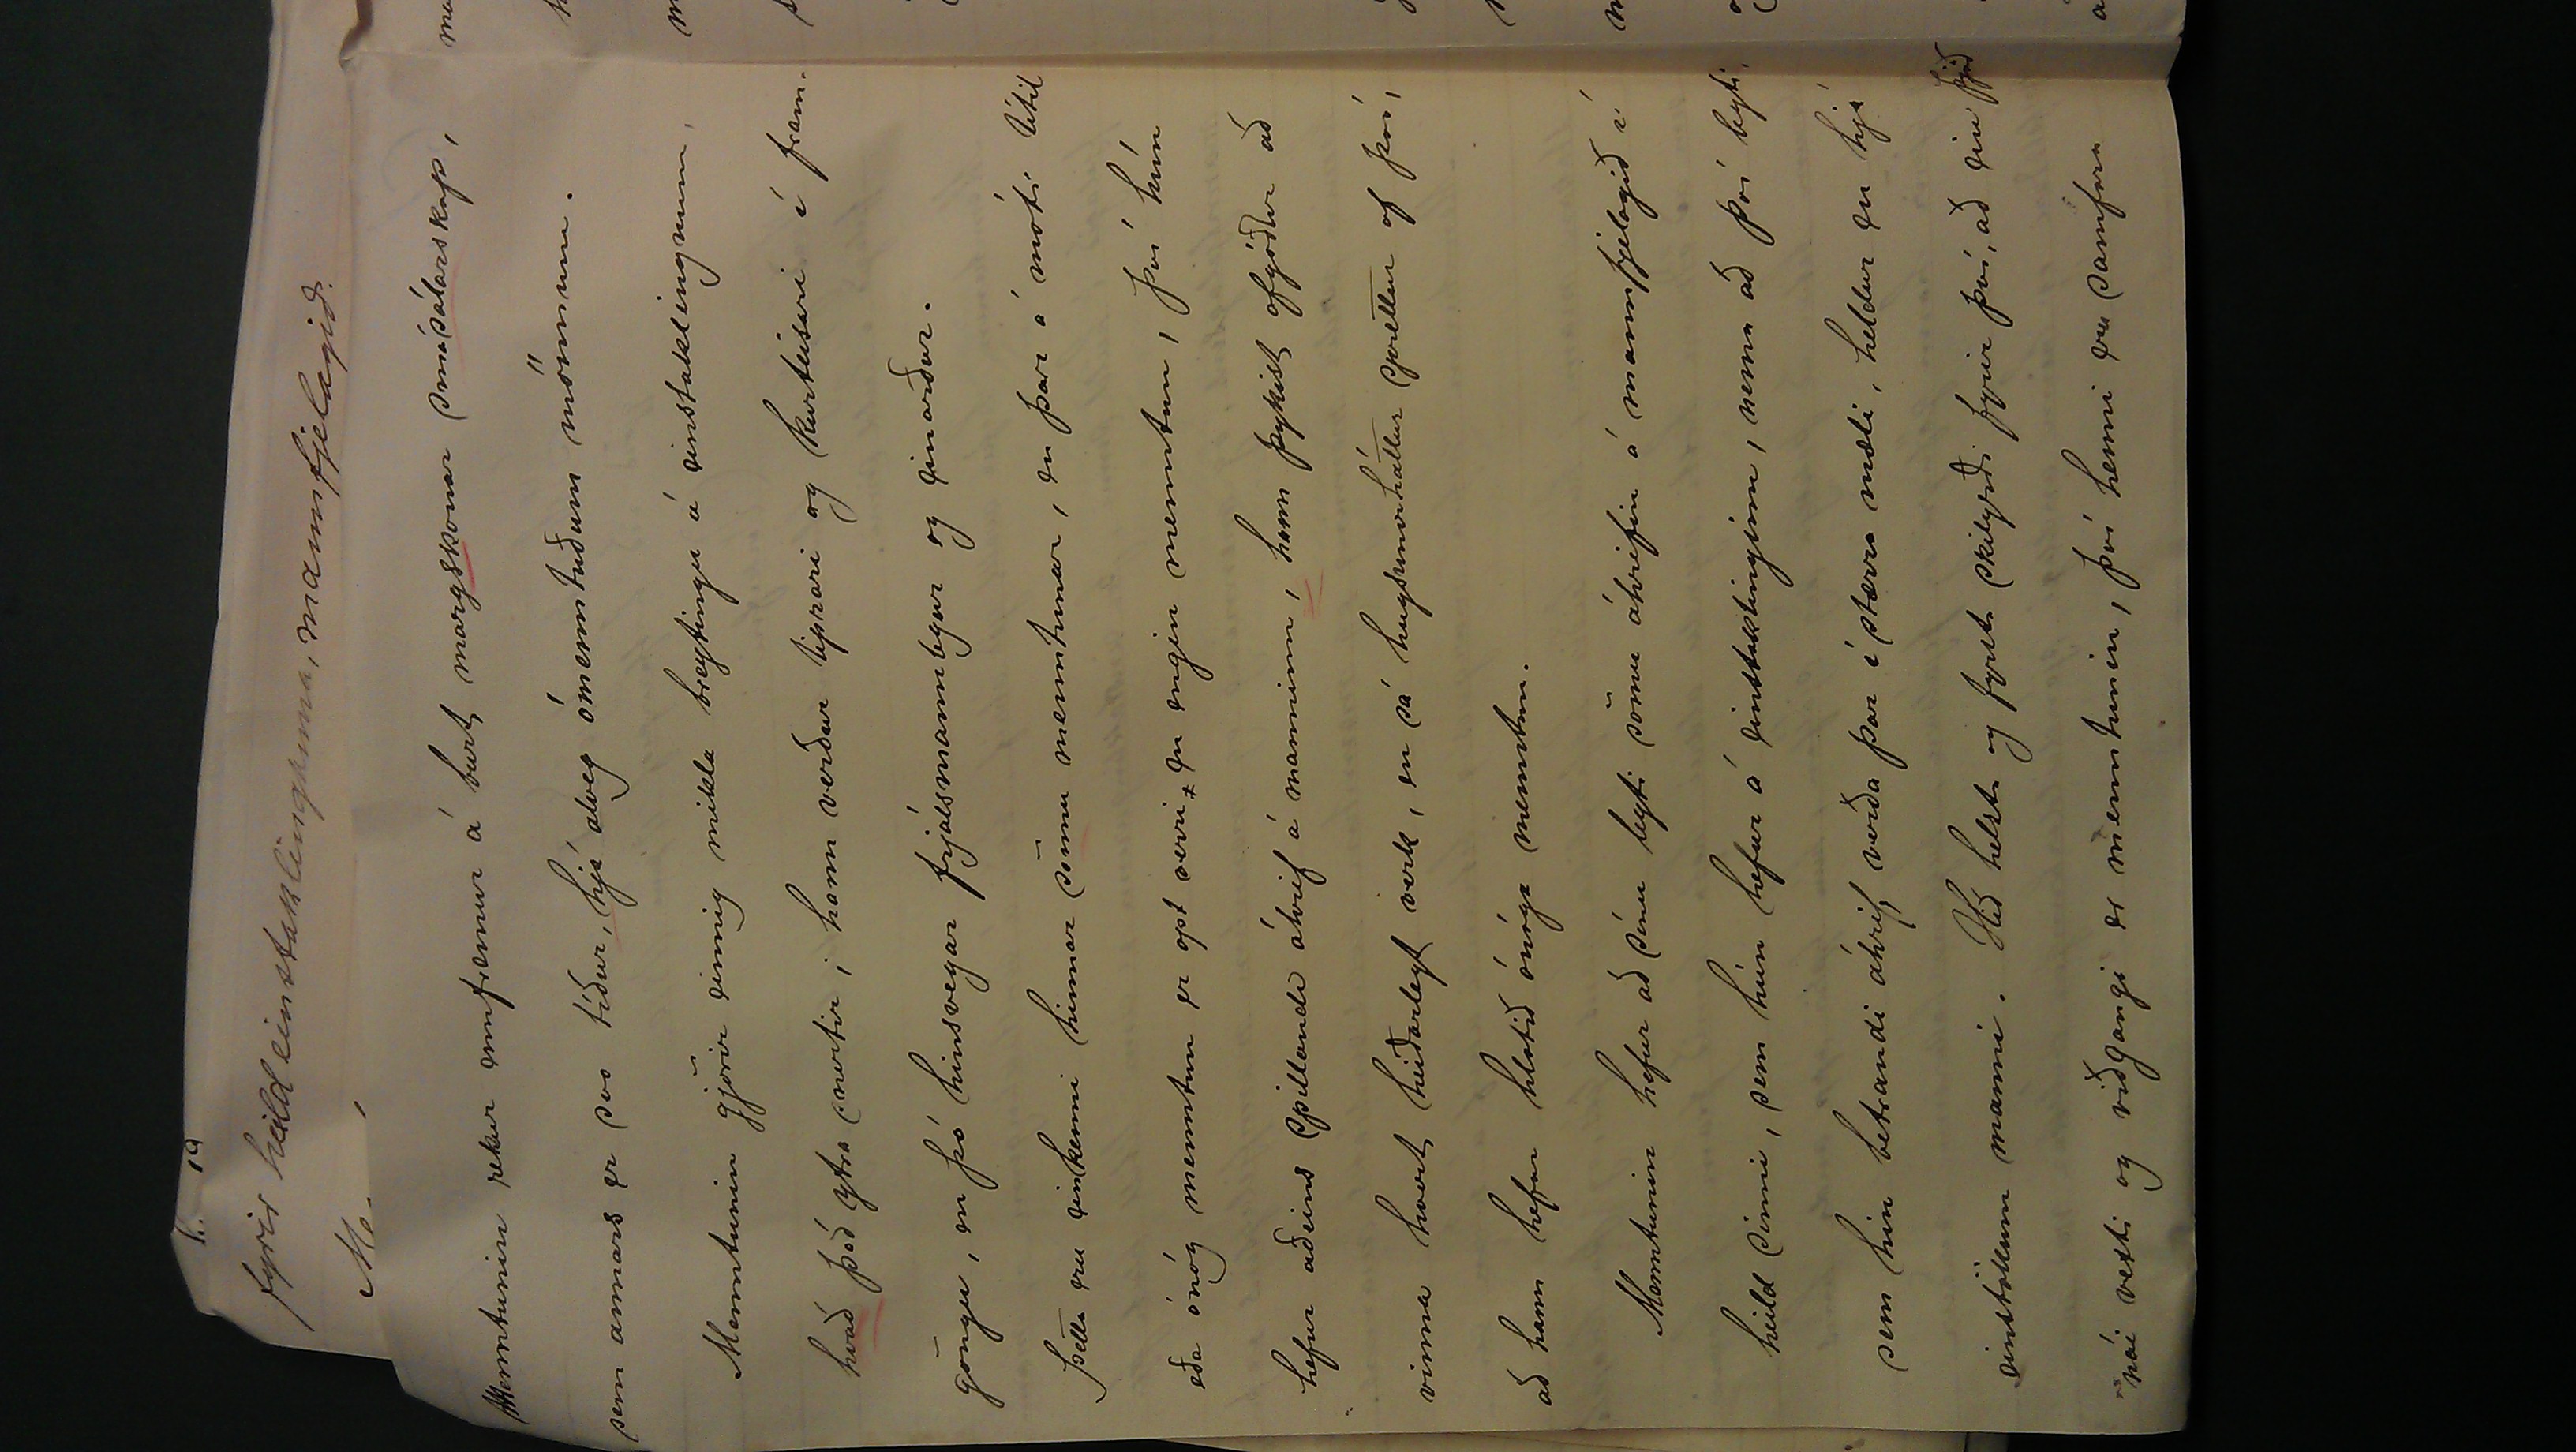 fyrir heild einstaklinganna, mannfjelagið.
Me
Menntunin rekur ennfremur á burt margskonar smásálarskap,
sem annars er svo tíður, hjá alveg ómenntuðum mönnum.
Menntunin gjörir einnig mikla breytingu á einstaklingnum,
hvað það ytra snertir; hann verður liprari og kurteisari í fram-
göngu, en þó hinsvegar frjálsmannlegur og einarður.
Þetta eru einkenni hinnar sönnu menntunar, en þar á móti lítil
eða ónóg menntun er opt verri en engin menntun, því hún
hefur aðeins spillandi áhrif á manninn, hann þykist ofgóður að
vinna hvert heiðarlegt verk, en sá hugsunarháttur sprettur af því,
að hann hefur hlotið ónóga menntun.
Menntunin hefur að sínu leyti sömu áhrifin á mannfjelagið í
heild sinni, sem hún hefur á einstaklinginn, nema að því leyti,
sem hin betrandi áhrif verða þar í stærra mæli, heldur en hjá
einstökum manni. Hið helsta og fyrsta skilyrði fyrir því, að ein þjóð
nái vexti og viðgangi er menntunin, því henni eru samfara